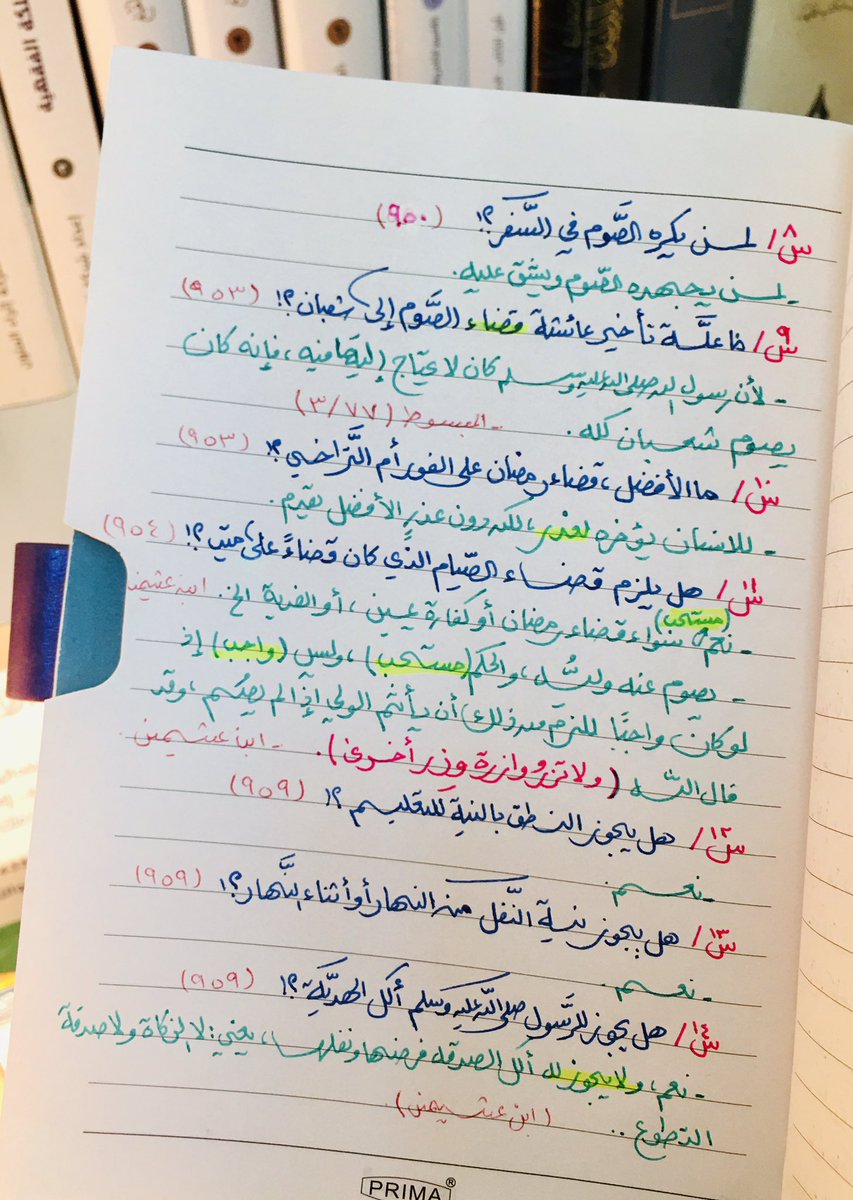 س٨/ لمن يكره الصَّوم في السَّفر؟! (٩٥٠)
- لمن يجهده الصَّوم ويشق عليه.
س٩/ ما علَّة تأخير عائشة قضاء الصَّوم إلى شعبان؟! (٩٥٣)
- لأن رسول الله صلى الله عليه وسلم كان لا يحتاج إليها فيه، فإنه كان
يصوم شعبان كله. - المبسوط (٣/٧٧)
س١٠/ ما الأفضل، قضاء رمضان على الفور أم التَّراخي؟! (٩٥٣)
- للإنسان يؤخره لعذر، لكن دون عذرٍ الأفضل تقديم.
س١١/ هل يلزم قضاء الصِّيام الذي كان قضاءً على ميّت؟! (٩٥٤)
- نعم (مستحب) سواء قضاء رمضان أو كفارة يمين، أو الفدية الخ. ابن عثيمين
- يصوم عنه وليُّه، والحكم (مستحب)، وليس (واجب) إذ
لو كان واجبًا للزم من ذلك أن يأثم الولي إذا لم يصم، وقد
قال الله (ولا تزر وازرة وزر أخرى). - ابن عثيمين.
س١٢/ هل يجوز النطق بالنية للتعليم؟! (٩٥٩)
- نعم.
س١٣/ هل يجوز نية النَّفل من النهار أو أثناء النَّهار؟! (٩٥٩)
- نعم.
س١٤/ هل يجوز للرَّسول صلى الله عليه وسلم أكل الهديَّة؟! (٩٥٩)
- نعم، ولا يجوز له أكل الصدقة فرضها ونفلها، يعني: لا الزكاة ولا صدقة
التطوع.. (ابن عثيمين).
PRIMA®